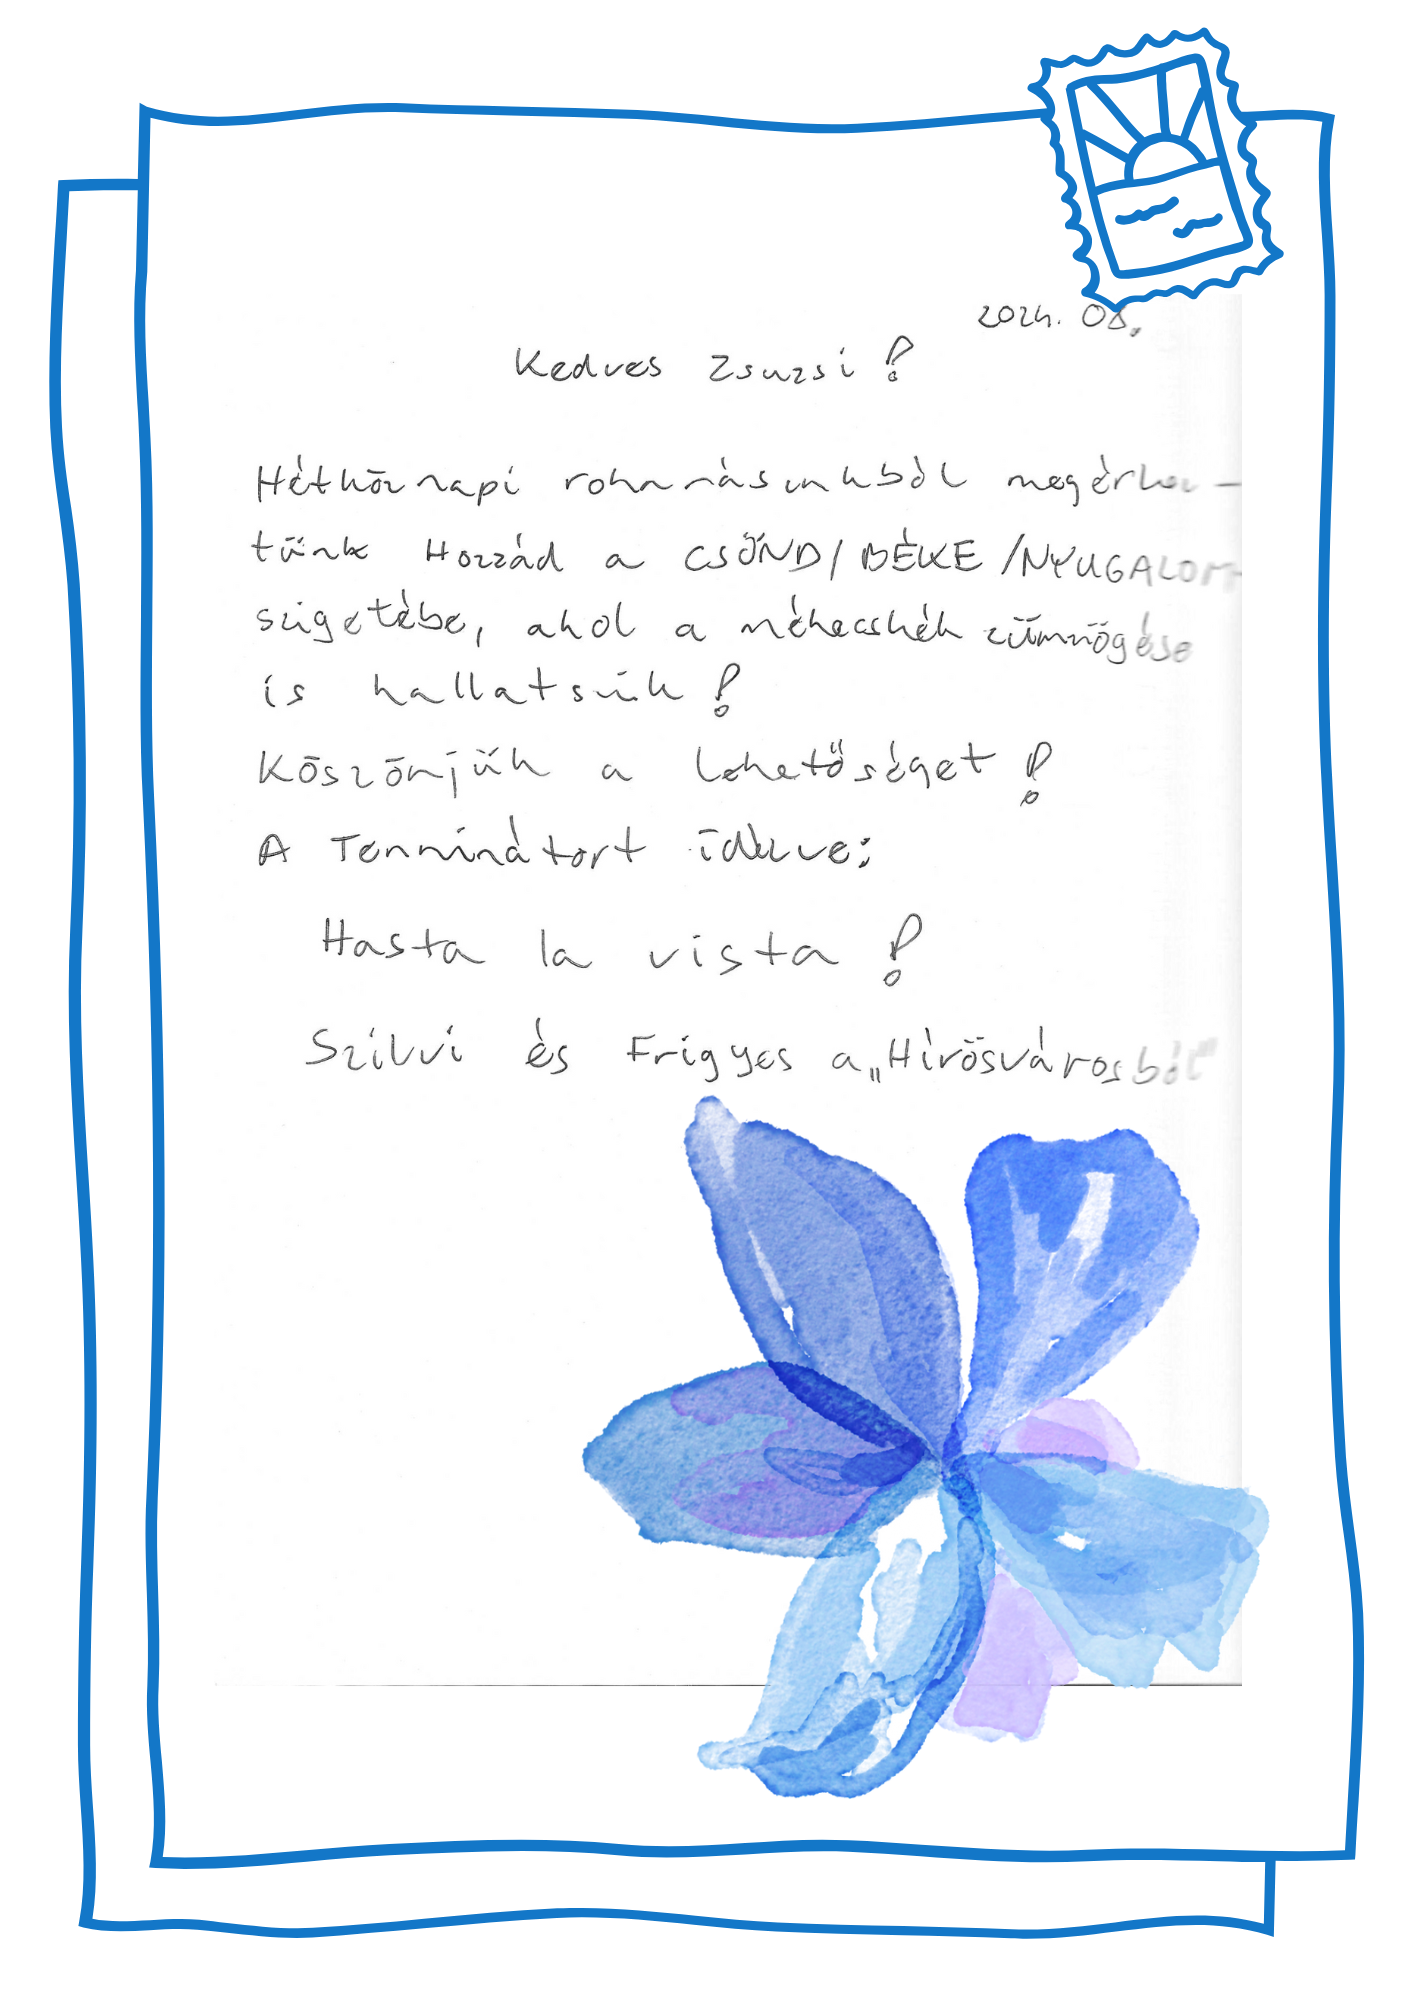 2024. 08.
Kedves Zsuzsi!
Hétköznapi rohanásunkból megérkez-
tünk Hozzád a CSÖND/BÉKE/NYUGALOM
szigetébe, ahol a méhecskék zümmögése
is hallatszik!
Köszönjük a lehetőséget!
A Terminátort idézve:
Hasta la vista!
Szilvi és Frigyes a „Hírösvárosból"